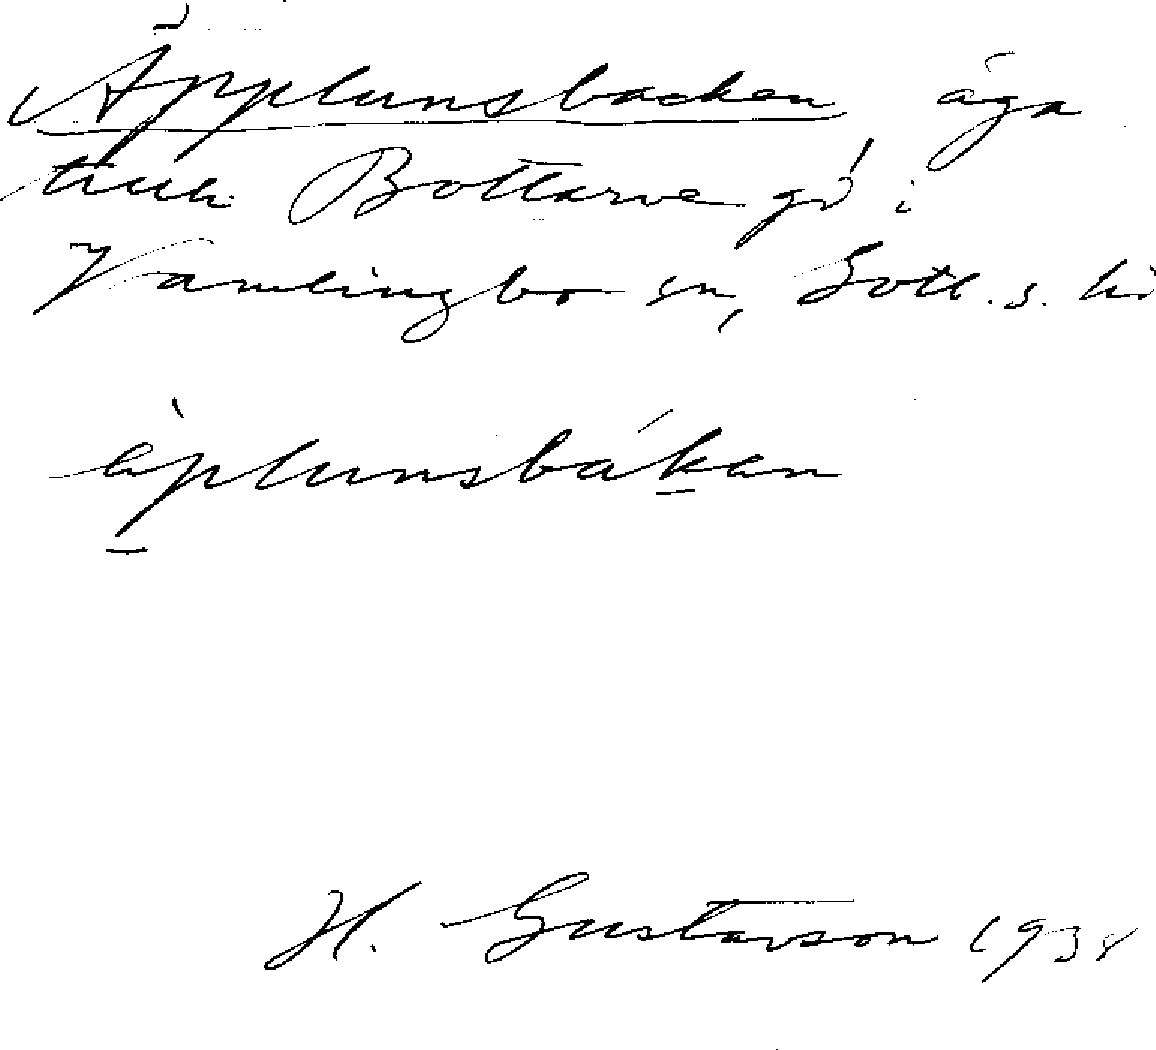 Äpplunsbacken, äga
Bottarve gd i
Vamlingbo sn, Gotl. s. hd
äplunsbákan
H. Gustavson 1938